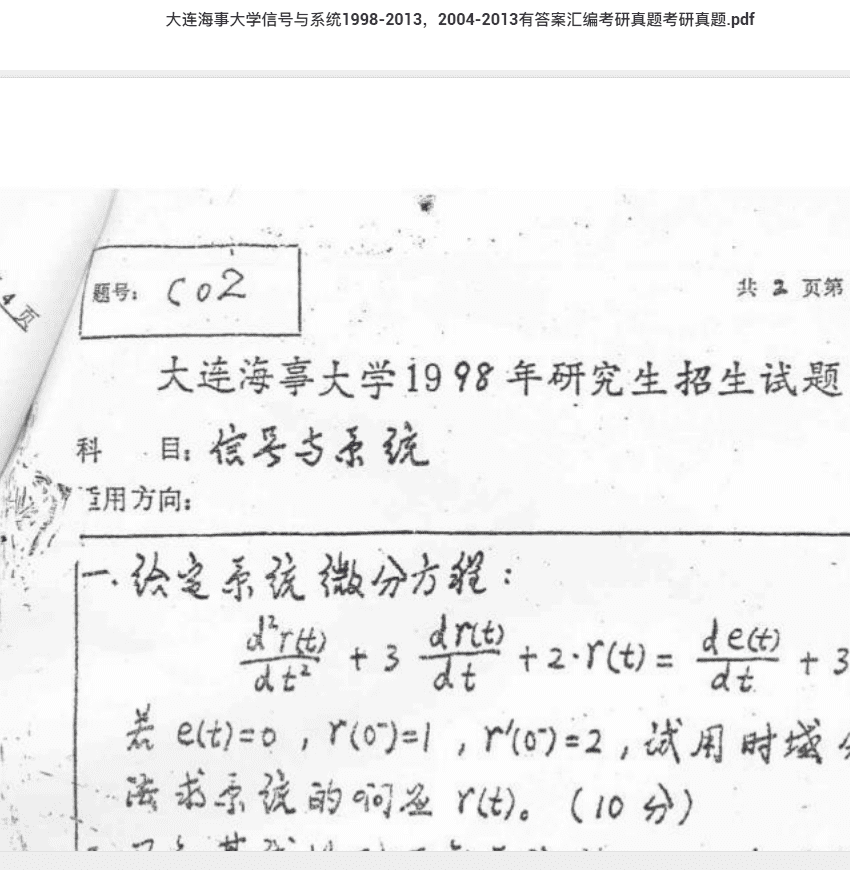 大连海事大学信号与系统1998-2013，2004-2013有答案汇编考研真题考研真题.pdf
4页
题号: C02
共 2 页第
大连海事大学1998年研究生招生试题
科 目: 信号与系统
用方向:
一. 给定系统微分方程:
d²r(t)/dt² + 3 dr(t)/dt + 2·r(t) = de(t)/dt + 3
若 e(t)=0, r(0⁻)=1, r'(0⁻)=2, 试用时域
法求系统的响应 r(t)。(10分)